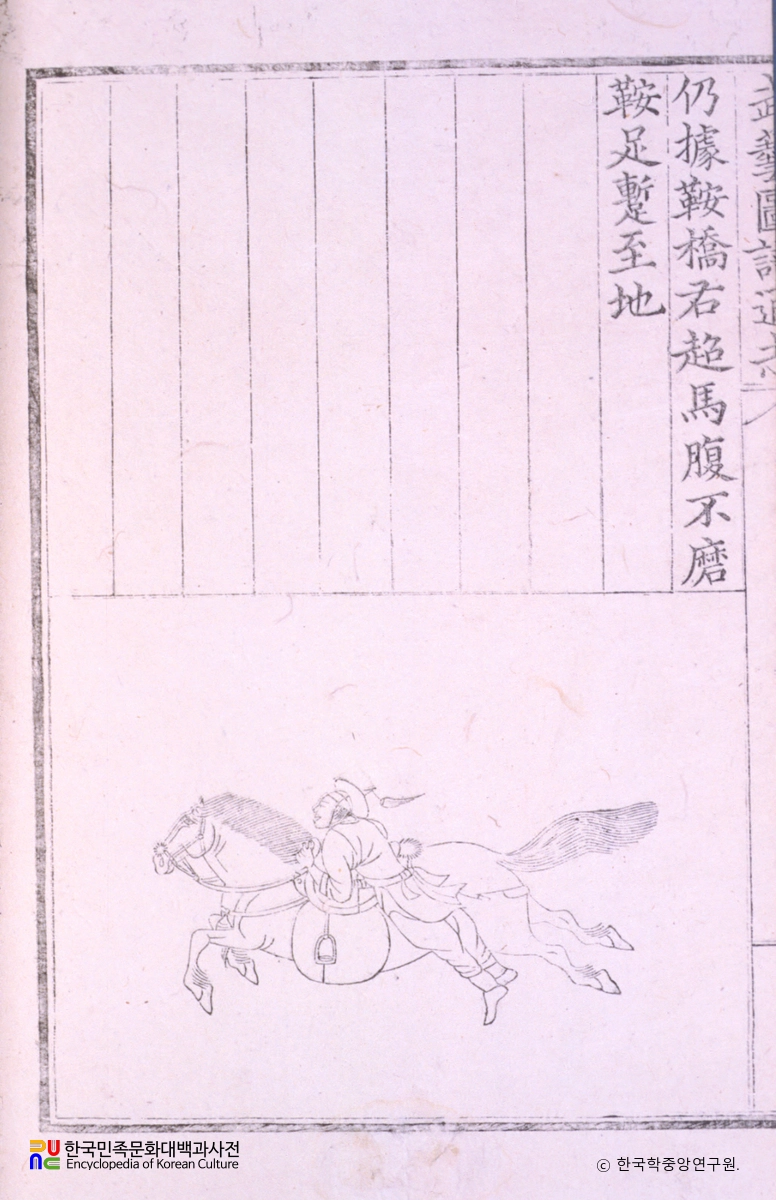 武藝圖譜通志
仍據鞍橋右超馬腹不磨
鞍足蹔至地
한국민족문화대백과사전
Encyclopedia of Korean Culture
© 한국학중앙연구원.